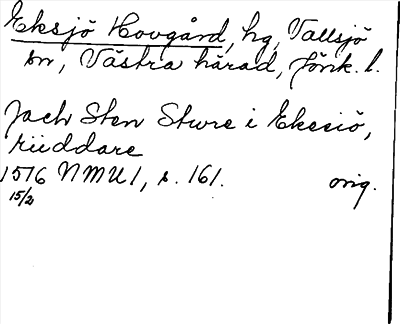 Eksjö Hovgård, hg, Vallsjö
sn, Västra härad, Jönk. l.
Jach Sten Sture i Ekesiö,
riiddare
1516 NMU 1, s. 161. orig.
15/2